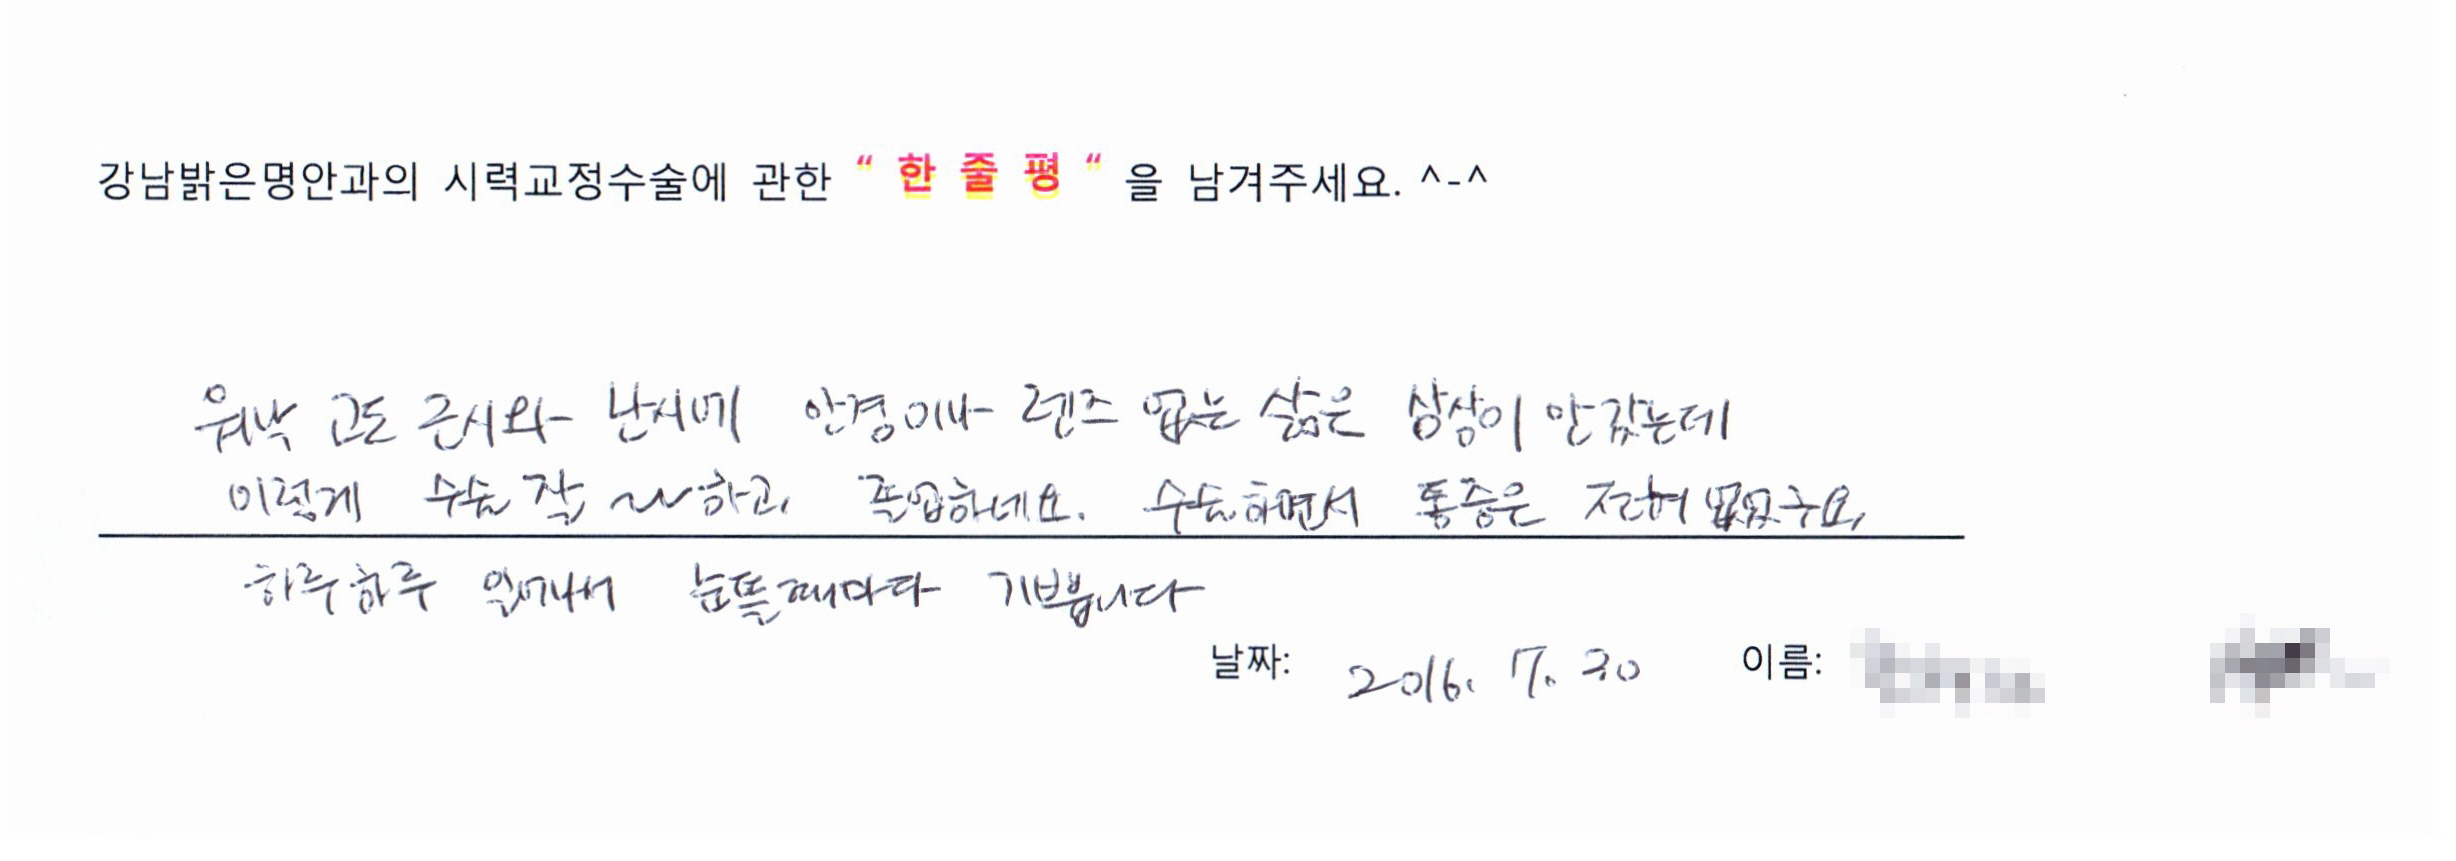 강남밝은명안과의 시력교정수술에 관한 " 한 줄 평 " 을 남겨주세요. ^-^
워낙 고도 근시와 난시에 안경이나 렌즈 없는 삶은 상상이 안갔는데
이렇게 수술 잘 ~~하고, 졸업하네요. 수술하면서 통증은 전혀 없었구요,
하루하루 일어나서 눈뜰때마다 기쁩니다
날짜: 2016. 7. 30 이름: